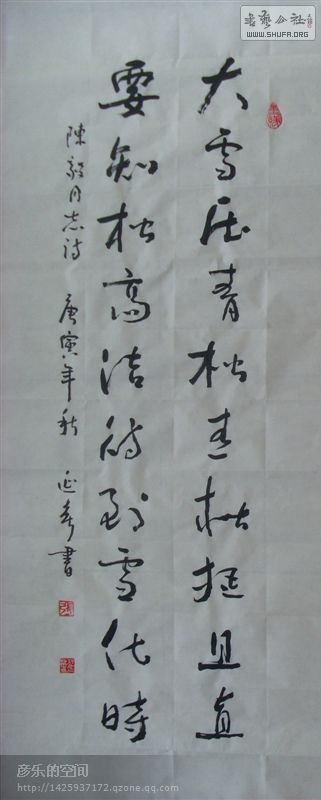 大雪压青松青松挺且直
要知松高洁待到雪化時
陳毅同志诗 庚寅年秋 延 書
書藝公社
WWW.SHUFA.ORG
彦乐的空间
http://1425937172.qzone.qq.com